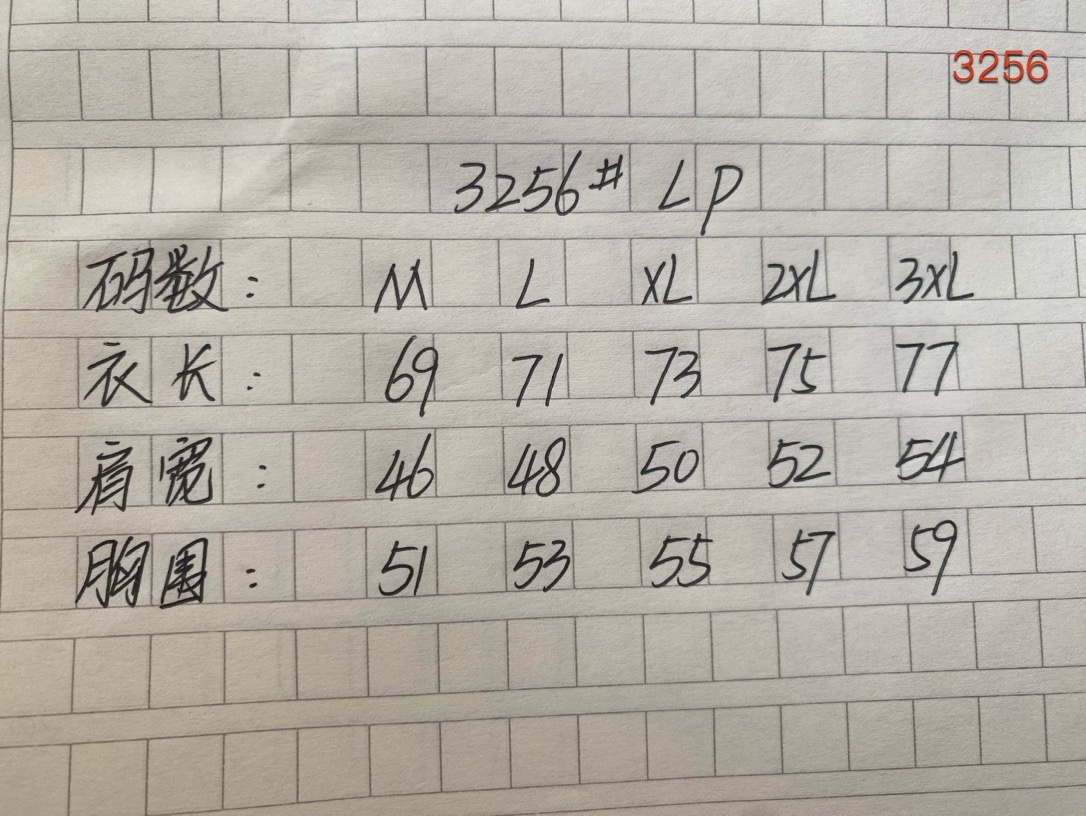 3256
3256# LP
码数: M L XL 2XL 3XL
衣长: 69 71 73 75 77
肩宽: 46 48 50 52 54
胸围: 51 53 55 57 59